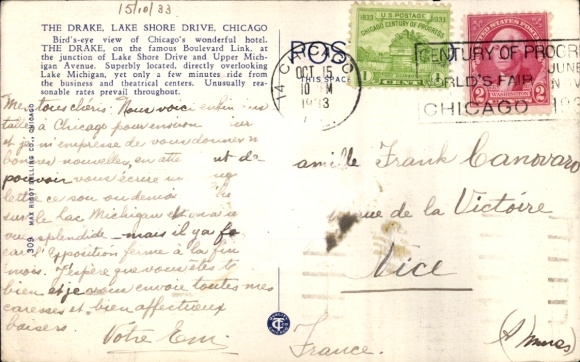 15/10/33
THE DRAKE, LAKE SHORE DRIVE, CHICAGO
Bird's-eye view of Chicago's wonderful hotel.
THE DRAKE, on the famous Boulevard Link, at
the junction of Lake Shore Drive and Upper Mich-
igan Avenue. Superbly located, directly overlooking
Lake Michigan, yet only a few minutes ride from
the business and theatrical centers. Unusually rea-
sonable rates prevail throughout.
Mes tous chéris. Nous voici enfin ins
tallés à Chicago pour environ
et je m'empresse de vous donner n
bonnes nouvelles, en atte nt de
pouvoir vous écrire
lettre ce soir ou demain
sur le lac Michigan et
splendide - mais il y a fo
car l'Exposition ferme à la fin
mois. J'espère que vous êtes t
bien et je vous envoie toutes mes
caresses et bien affectueux
baisers.
Votre Emi
309 MAX RIGOT SELLING CO., CHICAGO
POS
THIS SPACE
CHICAGO
14
OCT 15
10 M
1933
1833 U.S. POSTAGE 1933
CHICAGO CENTURY OF PROGRESS
1 CENT 1
UNITED STATES POSTAGE
2 WASHINGTON 2
CENTURY OF PROGR
WORLD'S FAIR
JUNE
NOV
CHICAGO 193
amille Frank Canovaro
ue de la Victoire
Nice
France.